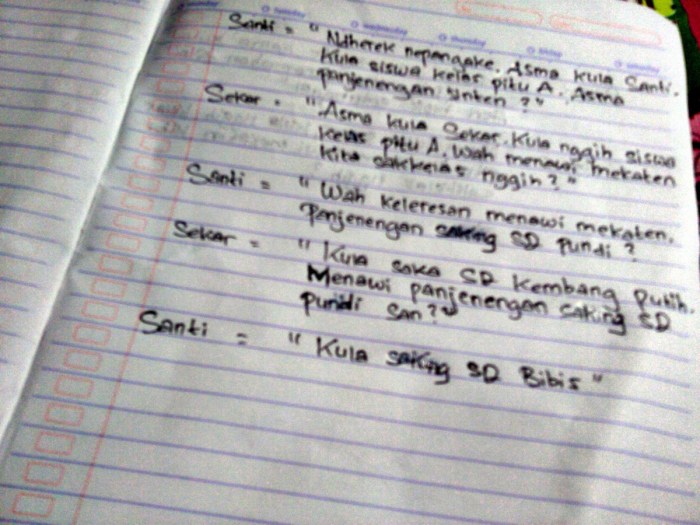 Santi = "Ndherek nepangake. Asma kula Santi.
Kula siswa kelas pitu A. Asma
panjenengan sinten?"
Sekar = "Asma kula Sekar. Kula nggih siswa
kelas pitu A. Wah menawi mekaten
kita sakkelas nggih?"
Santi = "Wah keleresan menawi mekaten.
Panjenengan saking SD pundi?
Sekar = "Kula saka SD Kembang Putih.
Menawi panjenengan saking SD
pundi San?"
Santi = "Kula saking SD Bibis"